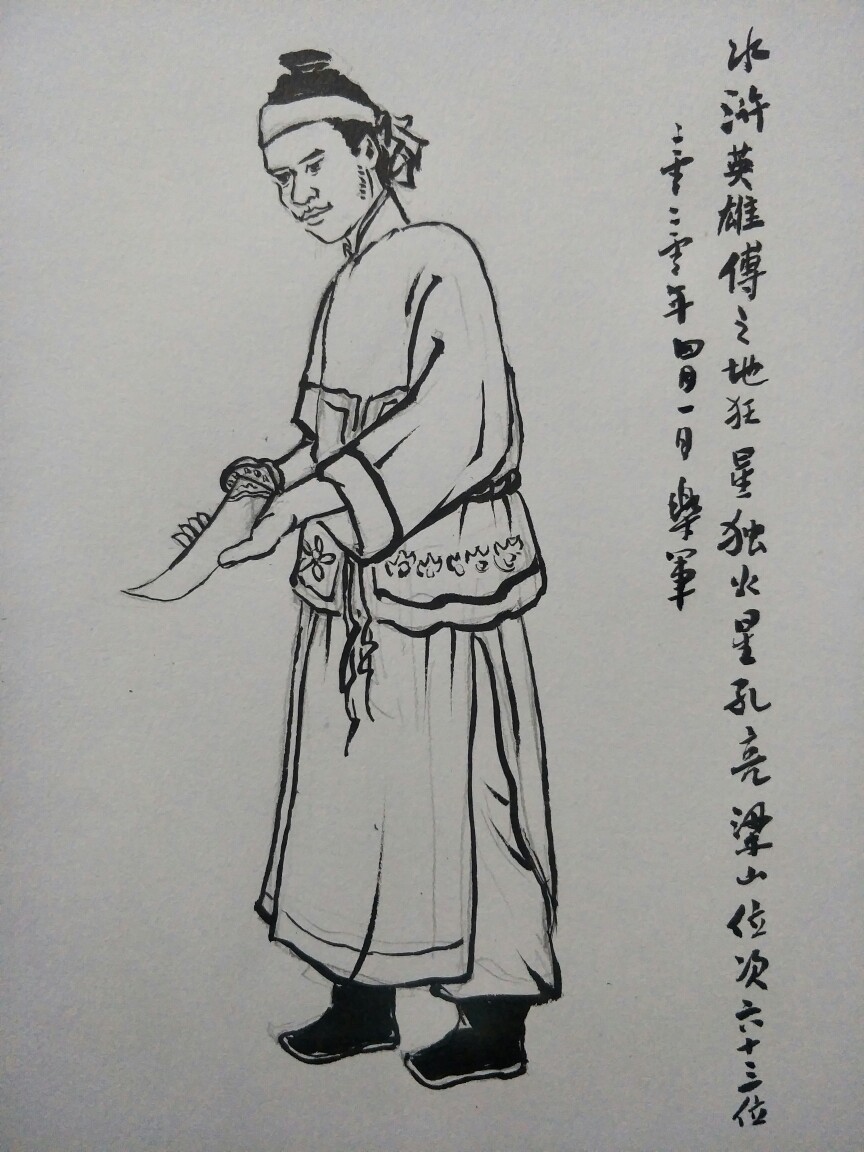 水浒英雄傅之地狂星独火星孔亮梁山位次六十三位
二零二零年四月一日樂軍